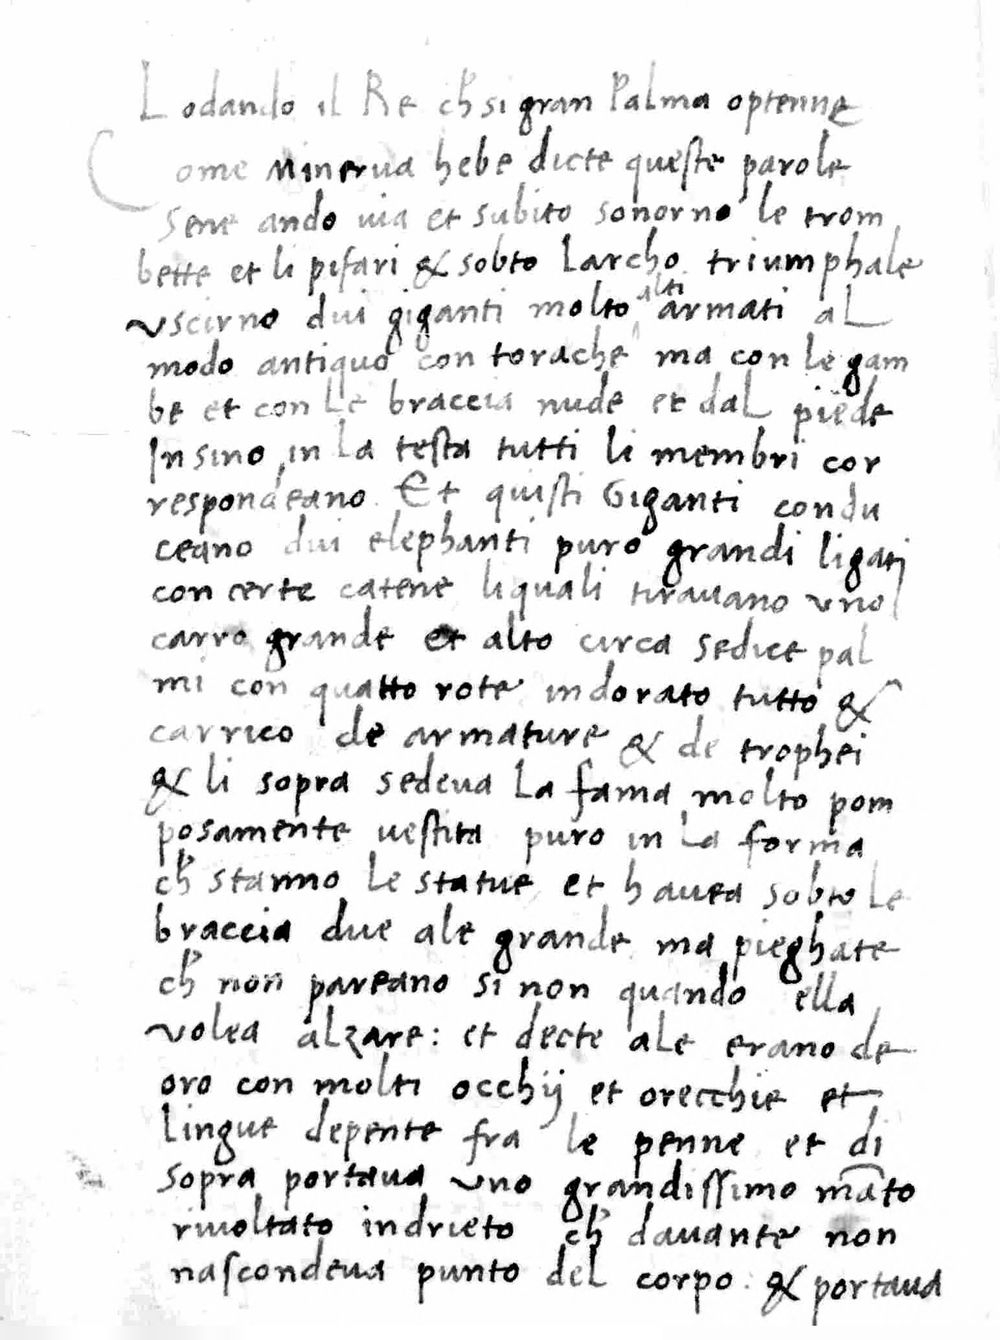 Lodando il Re ch̓ si gran Palma optenne
Come Minerua hebe dicte queſte parole
Sene ando uia et subito sonorno le trom
bette et li pifari & sobto Larcho triumphale
vscirno dui giganti molto alti armati al
modo antiquo con torache ma con le gam
be et con Le braccia nude et dal piede
Insino in la teſta tutti li membri cor
respondeano. Et quiſti Giganti condu
ceano dui elephanti puro grandi ligati
con certe catene li quali tirauano vno
carro grande et alto circa sedice pal
mi con quatto rote indorato tutto &
carrico de armature & de trophei
& li sopra sedeua La fama molto pom
posamente ueſtita puro in La forma
ch̓ stanno le statue et hauea sobto le
braccia due ale grande ma pieghate
ch̓ non pareano si non quando ella
volea alzare: et decte ale erano de
oro con molti occhij et orecchie et
lingue depente fra le penne et di
sopra portaua vno grandiſſimo mãto
riuoltato indrieto ch̓ dauante non
naſcondeua punto del corpo. & portaua